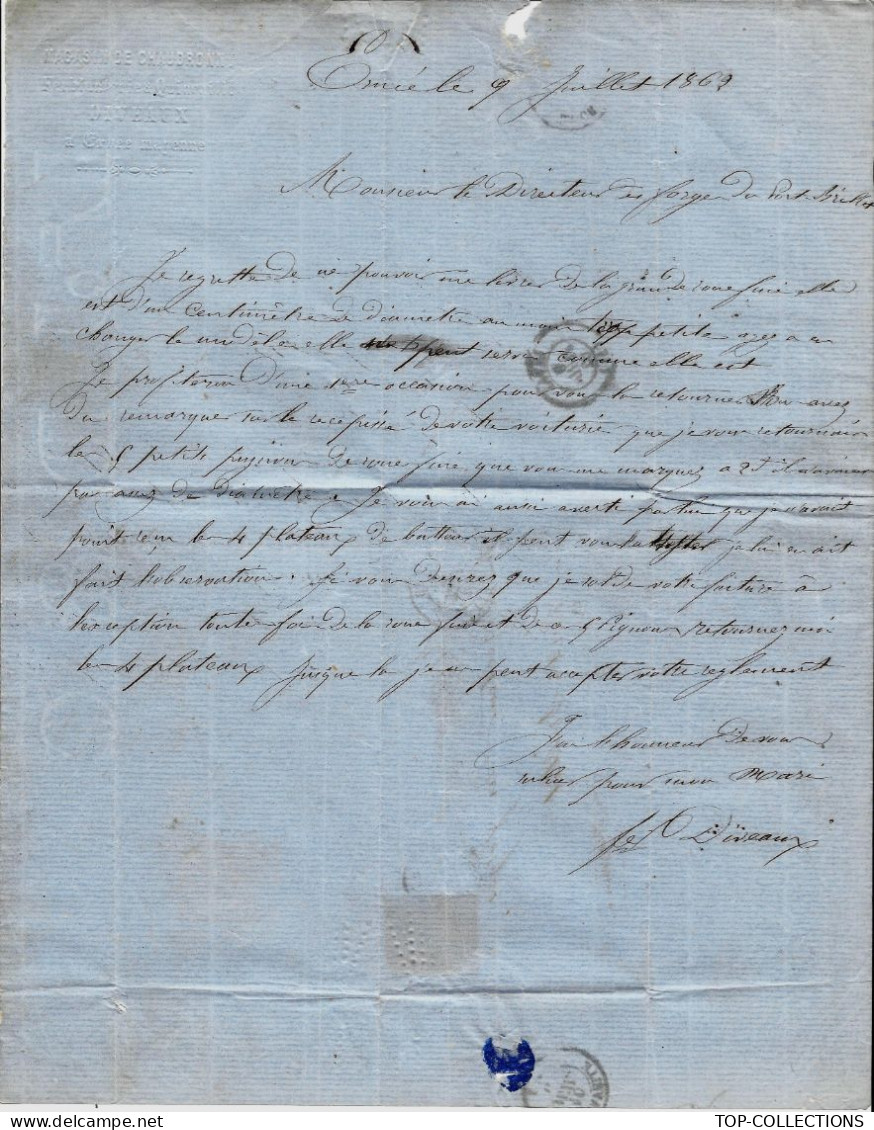 MAGASIN DE CHAUDRONN
DIVEAUX
à Ernée Mayenne
Ernée le 9 Juillet 1869
Monsieur le Directeur des forges du Port Brillet
Je regrette de ne pouvoir me livrer de la grande roue fuie elle
est d'un centimètre de diametre au moin petite
changer le modèle elle peut servir comme elle est
Je profiterai d'une occasion pour vous la retourner Vous avez
du remarquer sur le recepissé de votre voiturié que je vous retournais
les 5 petits pignion de roue fuie que vous me marquez a 2f il n'avais
pas assez de diamètre Je vous ai aussi averti par lui que je n'avait
point reçu les 4 plateaux de batteur il peut vous je lui en ait
fait l'observation. Si vous désirez que je solde votre facture à
l'exception toute fois de la roue fuie et de 5 Pignons retournez moi
les 4 plateaux jusque la je ne peut accepter votre reglement
J'ai l'honneur de vous
saluer pour mon Mari
fe Diveaux
TOP-COLLECTIONS